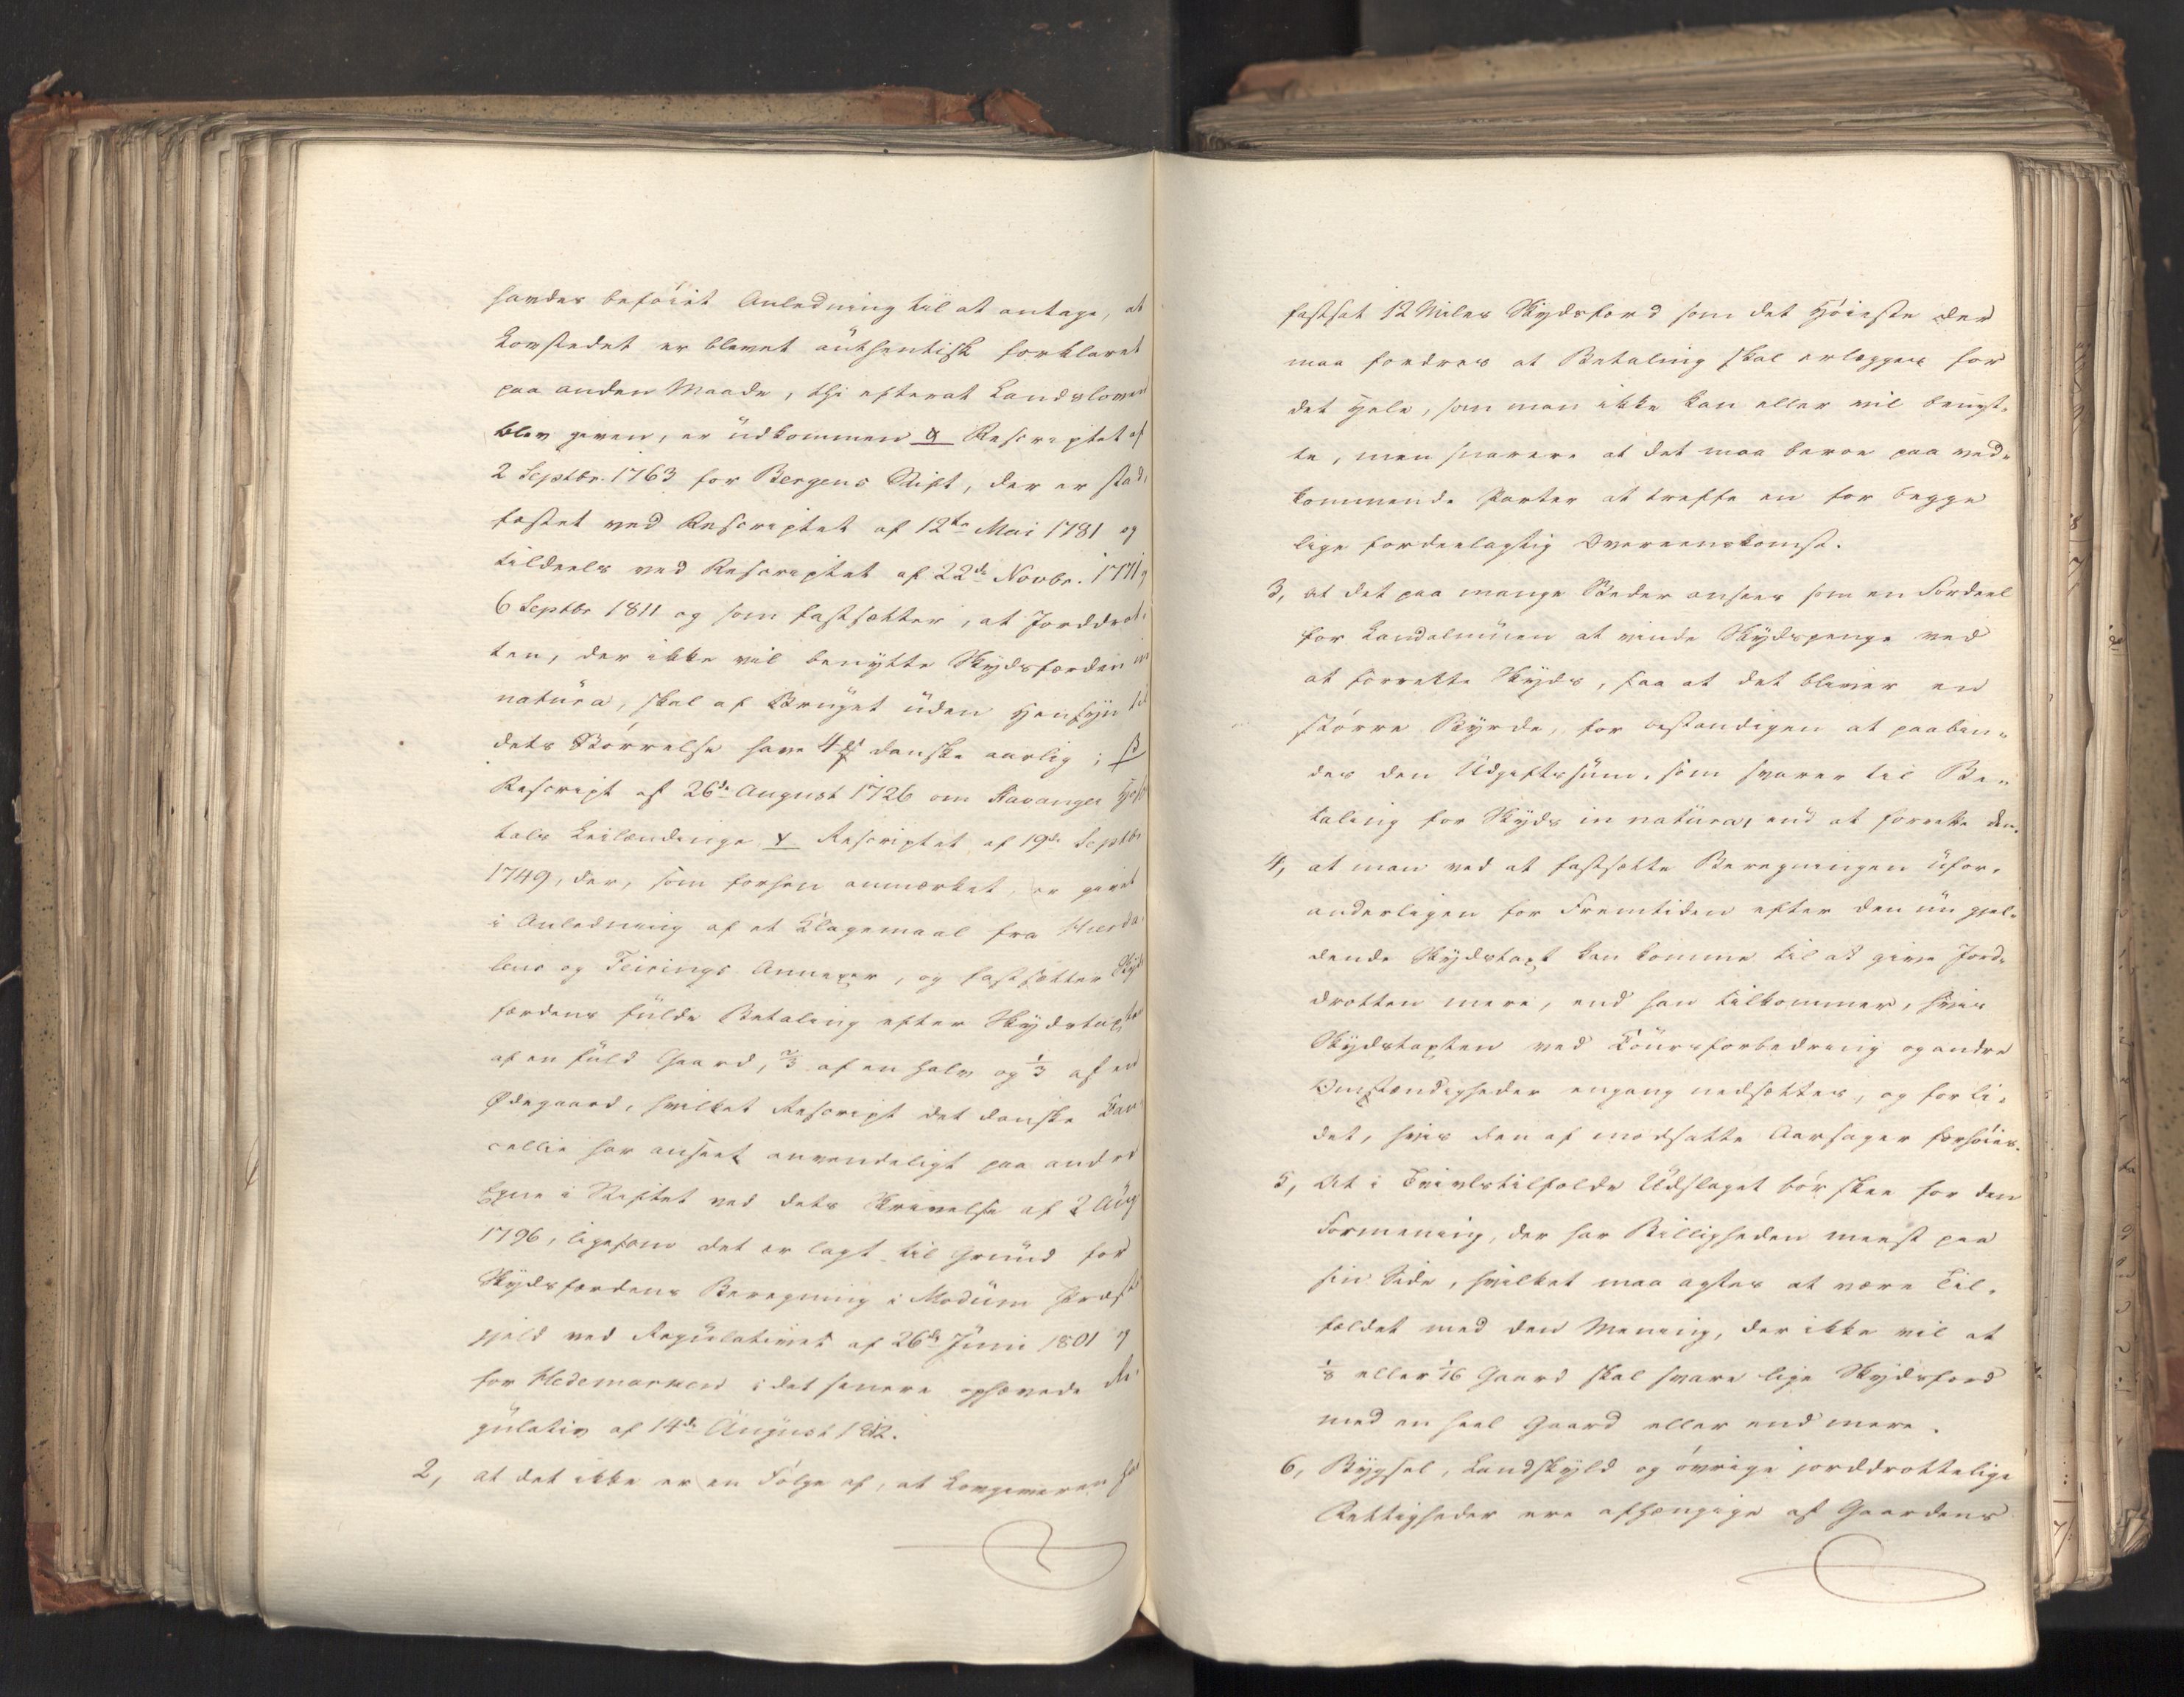 haves beføiet Anledning til at antage, at
Lovstedet er blevet authentisk forklaret
paa anden Maade, thi efterat Landsloven
blev given, er udkommen α Rescriptet af
2 Septbr. 1763 for Bergens Stift, der er stad¬
fæstet ved Rescriptet af 12te Mai 1781 og
tildeels ved Rescriptet af 22de Novbr. 1771 og
6 Septbr 1811 og som fastsætter, at Jorddrot¬
ten, der ikke vil benytte Skydsfærden in
natura, skal af Bruget uden Hensyn til
dets Størrelse have 4 danske aarlig; β
Rescript af 26de August 1726 om Stavanger Hospi¬
tals Leilændinge γ Rescriptet af 19de Septbr
1749, der, som forhen anmærket, er givet
i Anledning af et Klagemaal fra Hurda¬
lens og Feirings Annexer, og fastsætter Skyds
færdens fulde Betaling efter Skydstaxten
af en fuld Gaard, 2/3 af en halv og 1/3 af en
Ødegaard, hvilket Rescript det danske Can¬
cellie har anseet anvendeligt paa andre
Egne i Stiftet ved dets Skrivelse af 2 Aug
1796, ligesom det er lagt til Grund for
Skydsfærdens Beregning i Modum Præste
gjeld ved Regulativet af 26de Juni 1801 og
for Hedemarken i det senere ophævede Re¬
gulativ af 14de August 1812.
2, at det ikke er en Følge af, at Lovgiveren har
fastsat 12 Miles Skydsferd som det Høieste der
maa fordres at Betaling skal erlægges for
det Hele, som man ikke kan eller vil benyt¬
te, men snarere at det maa beroe paa ved¬
kommende Parter at treffe en for begge
lige fordeelagtig Overeenskomst.
3, at det paa mange Steder ansees som en Fordeel
for Landalmuen at vinde Skydspenge ved
at forrette Skyds, saa at det bliver en
større Byrde, for bestandigen at paabyr¬
des den Udgiftssum, som svarer til Be¬
taling for Skyds in natura, end at forrette den.
4, at man ved at fastsætte Beregningen ufor¬
anderligen for Fremtiden efter den nu gjel¬
dende Skydstaxt kan komme til at give Jord¬
drotten mere, end han tilkommer, hvis
Skydstaxten ved Coursforbedring og andre
Omstændigheder engang nedsættes, og for li¬
det, hvis den af modsatte Aarsager forhøies.
5, At i Tvivlstilfælde Udslaget bør skee for den
Formening, der har Billigheden meest paa
sin Side, hvilket maa agtes at være Til¬
fældet med den Mening, der ikke vil at
1/8 eller 1/16 Gaard skal svare lige Skydsferd
med en heel Gaard eller end mere.
6, Bygsel, Landskyld og øvrige jorddrottelige
Rettigheder ere afhængige af Gaardens